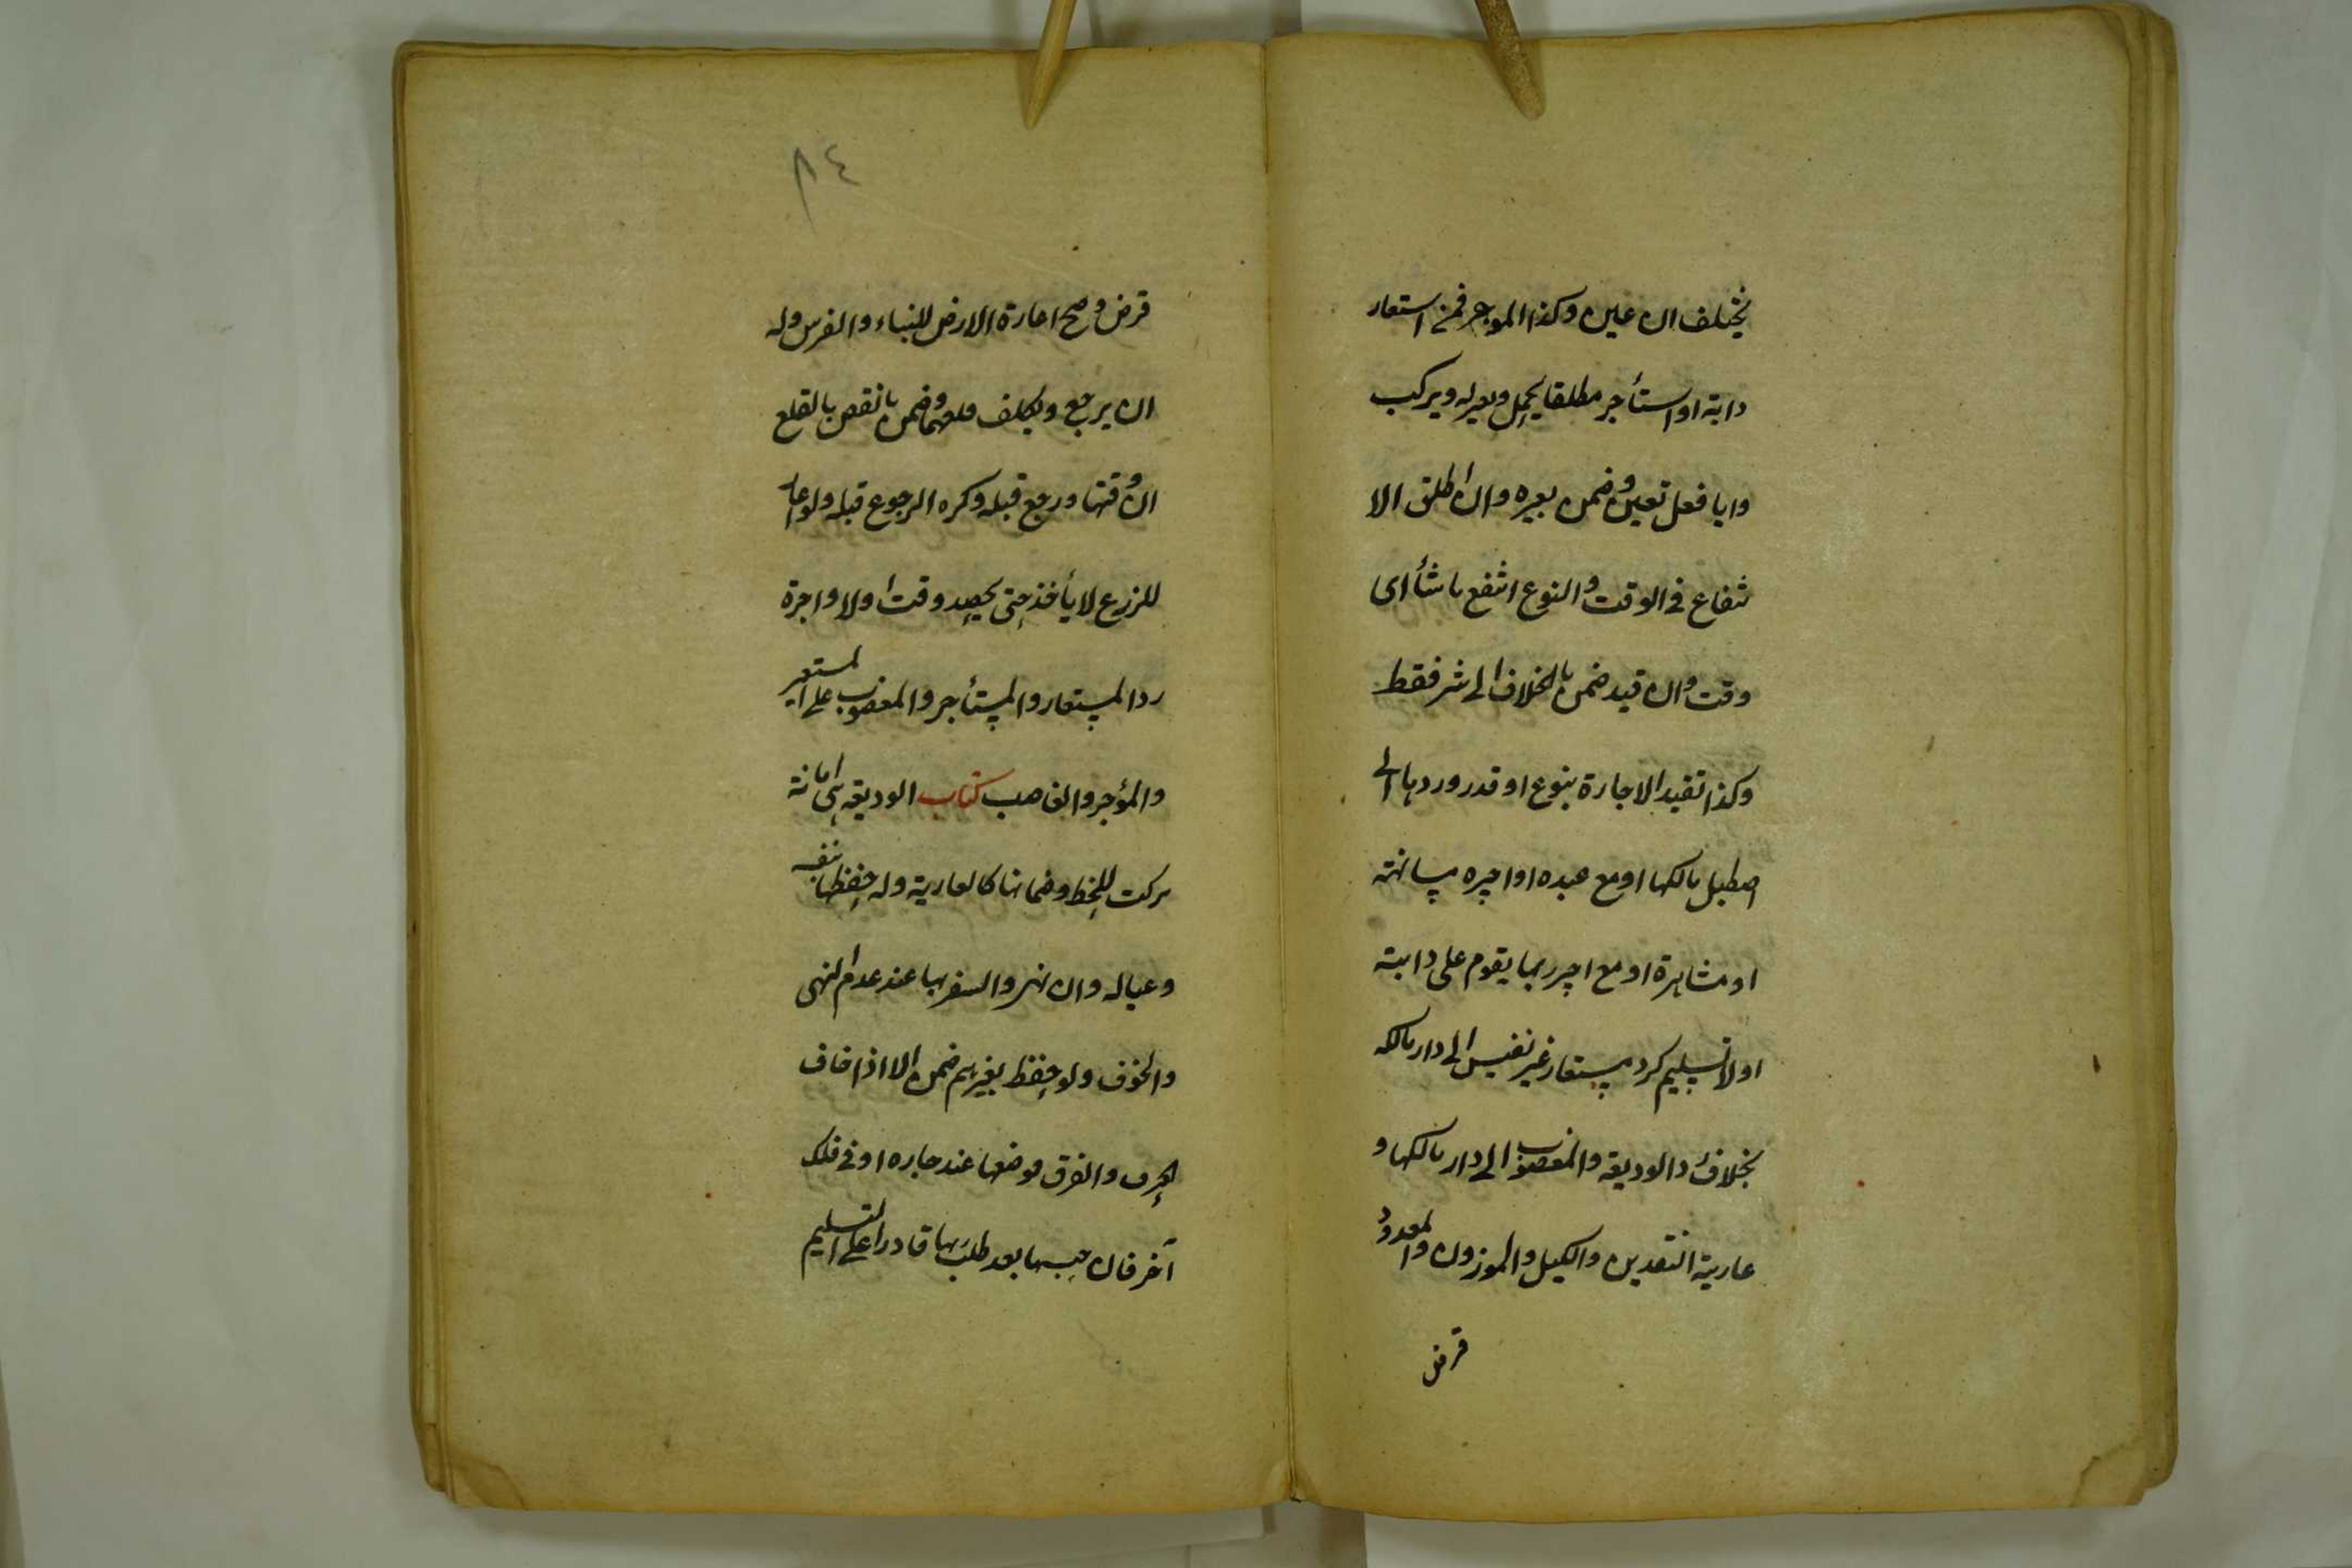 يختلف ان عين وكذا الموجر فمن استعار
دابة او استأجر مطلقا يحمل ويعير له ويركب
وايا فعل تعين وضمن بغيره وان اطلق الا
نتفاع فى الوقت والنوع انتفع ما شأ اى
وقت وان قيد ضمن بالخلاف الى شر فقط
وكذا تقيد الاجارة بنوع او قدر وردها الى
اصطبل مالكها او مع عبده او اجيره مسانهة
او مشاهرة او مع اجير ربها يقوم على دابته
او لا تسليم كرد مستعار غير نفيس الى دار مالكه
بخلاف رد الوديعة والمغصوب الى دار مالكها و
عارية النقدين والكيل والموزون والمعدود
قرض
٨٤
قرض وصح اعارة الارض للبناء والغرس وله
ان يرجع ويكلف قلعهما وضمن ما نقص بالقلع
ان وقتها ورجع قبله وكره الرجوع قبله ولو اعار
للزرع لا يأخذ حتى يحصد وقت اولا واجرة
رد المستعار والمستأجر والمغصوب على المستعير
والمؤجر والغاصب كتاب الوديعة هى امانة
تركت للحفظ وضمانها كالعارية وله حفظها بنفسه
وعياله وان نهى والسفر بها عند عدم النهى
والخوف ولو حفظ بغيرهم ضمن الا اذا خاف
الحرق والغرق فوضعها عند جاره او فى فلك
آخر فان حبسها بعد طلب ربها قادرا على التسليم